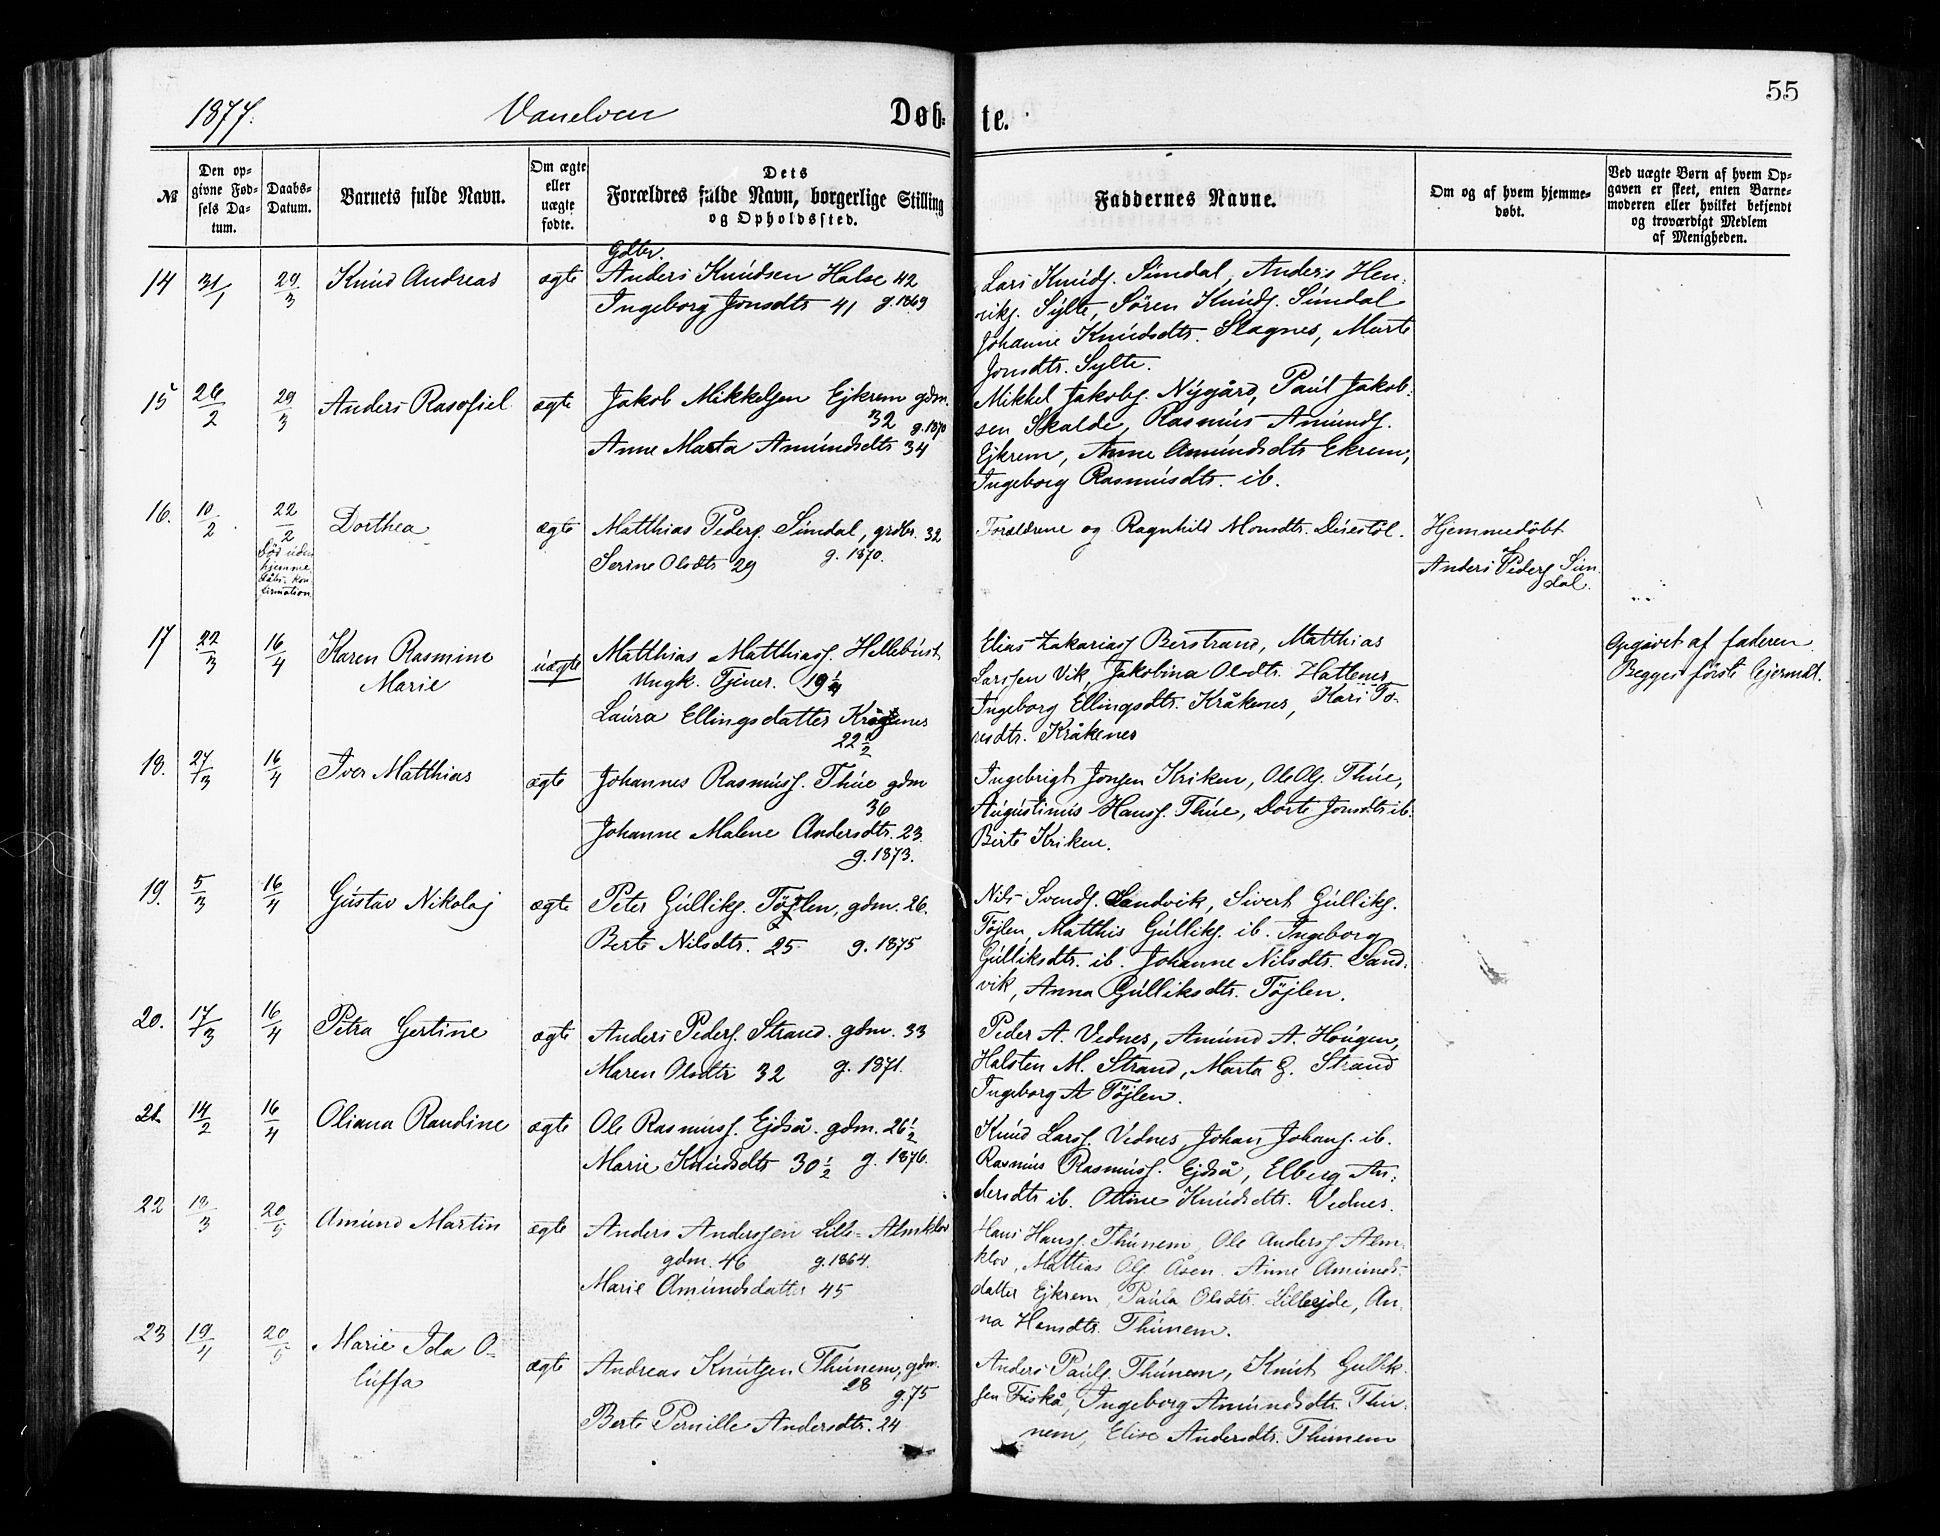 55
1877. Vanelven Døb- te.
№
Den opgivne Fødsels Datum.
Daabs-Datum.
Barnets fulde Navn.
Om ægte eller uægte fødte.
Dets Forældres fulde Navn, borgerlige Stilling og Opholdssted.
Faddernes Navne.
Om og af hvem hjemmedøbt.
Ved uægte Børn af hvem Opgaven er skeet, enten Barnemoderen eller hvilket bekjendt og troværdigt Medlem af Menigheden.
14 31/1 29/3 Knud Andreas ægte
Gdbr.
Anders Knudsen Halse 42
Ingeborg Jonsdtr 41 g. 1869
Lars Knuds. Sundal, Anders Hen-
riks. Sylte, Sören Knuds. Sundal
Johanne Knudsdtr. Slagnes, Marte
Jonsdtr. Sylte.
15 26/2 29/3 Anders Rasofiel ægte
Jakob Mikkelsen Ejkrem gdm.
32 g. 1870
Anne Marta Amundsdtr 34
Mikkel Jakobs. Nygård, Paul Jakob-
sen Skalde, Rasmus Amunds.
Ejkrem, Anne Amundsdtr Ekrem,
Ingeborg Rasmusdtr. ib.
16. 10/2 22/2 Dorthea ægte
död uden
hjemme
dåbs. kon
firmation
Matthias Peders. Sundal, grdbr. 32
Serine Olsdtr 29 g. 1870.
Forældrene og Ragnhild Monsdtr. Duestöl.
Hjemmedöbt
Anders Peders Sun
dal.
17 22/3 16/4 Karen Rasmine
Marie
uægte
Matthias Matthiass. Hellebust
Ungk. Tjener. 19 1/4
Laura Ellingsdatter Kråkenes
22 1/2
Elias Zakarias Berstrand, Matthias
Larssen Vik, Jakobina Olsdtr. Hatlenes
Ingeborg Ellingsdtr. Kråkenes, Kari To-
resdtr. Kråkenes
Opgivet af faderen.
Begges förste Lejermål.
18. 27/3 16/4 Iver Matthias ægte
Johannes Rasmuss. Thue gdm
36
Johanne Malene Andersdtr. 23
g. 1873.
Ingebrigt Jonsen Kriken, Ole Ols. Thue,
Augustinus Hanss. Thue, Dorte Jonsdtr ib.
Birte Kriken.
19. 5/3 16/4 Gustav Nikolaj ægte
Peter Gulliks. Töjlen, gdm. 26.
Berte Nilsdtr. 25 g. 1875
Nils Svends. Sandvik, Sivert Gulliks.
Töjlen, Matthis Gulliks. ib. Ingeborg
Gulliksdtr. ib. Johanne Nilsdtr. Sand-
vik, Anna Gulliksdtr. Töjlen.
20. 17/3 16/4 Petra Gertine ægte
Anders Peders. Strand. gdm. 33
Maren Olsdtr 32 g. 1871.
Peder A. Vednes, Amund A. Hougen,
Halsten M. Strand, Marta G. Strand
Ingeborg A Töjlen.
21. 14/2 16/4 Oliana Randine ægte
Ole Rasmuss. Ejdså. gdm. 26 1/2
Marie Knudsdtr 30 1/2 g. 1876.
Knud Larss. Vednes, Johan Johans. ib.
Rasmus Rasmuss. Ejdså, Elberg An-
dersdtr ib. Ottine Knudsdtr. Vednes.
22 13/3 20/5 Amund Martin ægte
Anders Anderssen Lille-Almklov
gdm. 46 g. 1864.
Marie Amundsdatter 45
Hans Hanss. Thunem, Ole Anders. Alm-
klov, Mattias Ols. Åsen. Anne Amunds-
datter Ejkrem, Paula Olsdtr. Lillejde, An-
na Hansdtr. Thunem.
23 19/4 20/5 Marie Ida O-
luffa
ægte
Andreas Knutsen Thunem, gdm.
28 g. 75
Berte Pernille Andersdtr. 24
Anders Pauls. Thunem, Knut Gullik-
sen Fiskå, Ingeborg Amundsdtr. Thu-
nem, Elise Andersdtr. Thunem